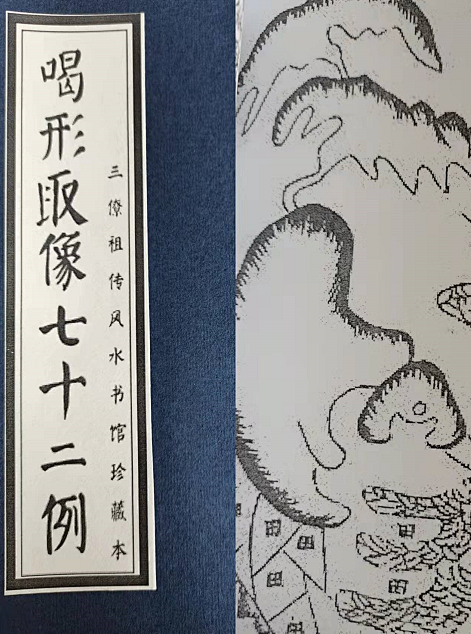 喝形取像七十二例
三僚祖传风水书馆珍藏本